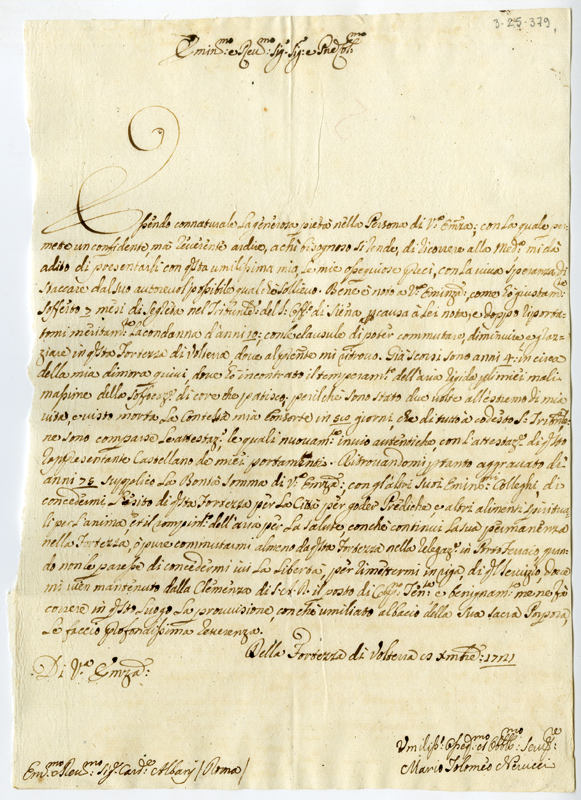 3-25-379
Emin.mo e Rev.mo Sig.r Sig.r e Pron Col.mo
Essendo connaturale la generosa pietà nella Persona di V.a Em.za: con la quale per-
mette un confidente, mà reverente ardire, a chi bisognoso si rende, di ricorrere alla Med.a mi dà
adito di presentarli con q.sta umilissima mia le mie ossequiose preci, con la viva speranza di
staccare dal suo autorevol possibile qualche sollievo. Bene è noto a V.a Eminza: come hò giustam.te
sofferto 7 mesi di segreta nel Tribunle del S. Off.o di Siena, p causa à Lei nota, e doppo riporta-
tomi meritam.te la condanna d'anni 10: con le clausule di poter commutare, diminuire e gra-
ziare in q.sta Fortezza di Volterra dove al p̄sente mi ritrovo. Già scorsi sono anni 4: in circa
della mia dimora quivi, dove hò incontrato il temperam.to dell'aria rigida p li miei mali
massime della soffoccaz.e di core che patisco, per il che sono stato due volte all'estremo di mia
vita, e visto morta la Contessa mia Consorte in giorni che di tutto à codesto S.to Tribuna-
ne sono comparse le attestaz.i le quali nuovam.te invio autentiche, con l'attestaz.e di q.sto
Rappresentante Castellano de miei portamenti. Ritrovandomi p tanto aggravato di
anni 75 supplico la Bontà somma di V.a Eminza: con gl'altri suoi Eminti Colleghi, di
concedermi l'esito di q.sta Fortezza per la Città per goder Prediche e altri alimenti spiritua-
li per l'anima et il temperam.to dell'aria per la salute con che continui la sua permanenza
nella Fortezza, ò pure commutarmi almeno da q.sta Fortezza nella relegaz.e in Porto Ferraio, quan-
do non le paresse di concedermi ivi la libertà; per rimettermi in riga di q.l servizio, dove
mi vien mantenuto dalla Clemenza di S. A. R. il posto di Cap.o Ten.te e benignam.te me ne fà
correre in q.sto luogo la provvisione, con che umiliato al bacio della Sua Sacra Porpora,
le faccio profondissima reverenza.
Della Fortezza di Volterra 1721
Di V.a Emza:
Umiliss.o Osseq.mo et Obb.mo Serv.re
Mario Tolomeo Nerucci
Em.mo e Rev.mo Sig.r Card.le Albani / Roma /